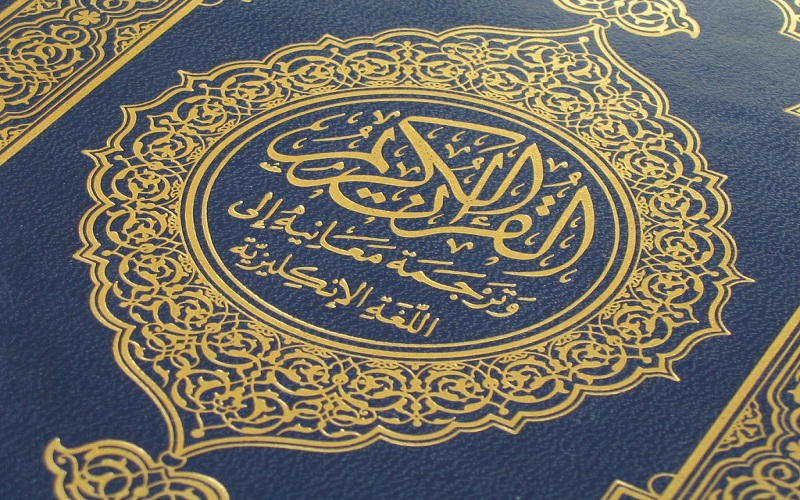 القرآن الكريم
وَتَرْجَمَة مَعَانِيهُ إلى
اللّغَة الإنكليزيّة